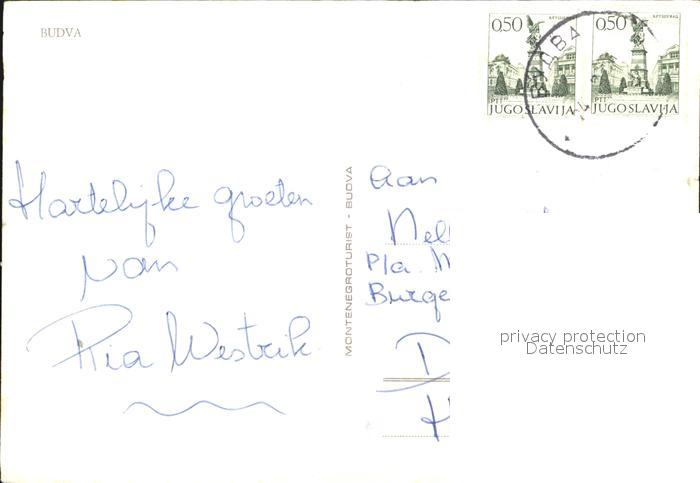 BUDVA
0,50 КРУШЕВАЦ
PTT
JUGOSLAVIJA
0,50 КРУШЕВАЦ
PTT
JUGOSLAVIJA
БУДВА
Hartelijke groeten
van
Ria Westrik
MONTENEGROTURIST - BUDVA
Aan
Nel
Pla. M
Burge
D
H
privacy protection
Datenschutz